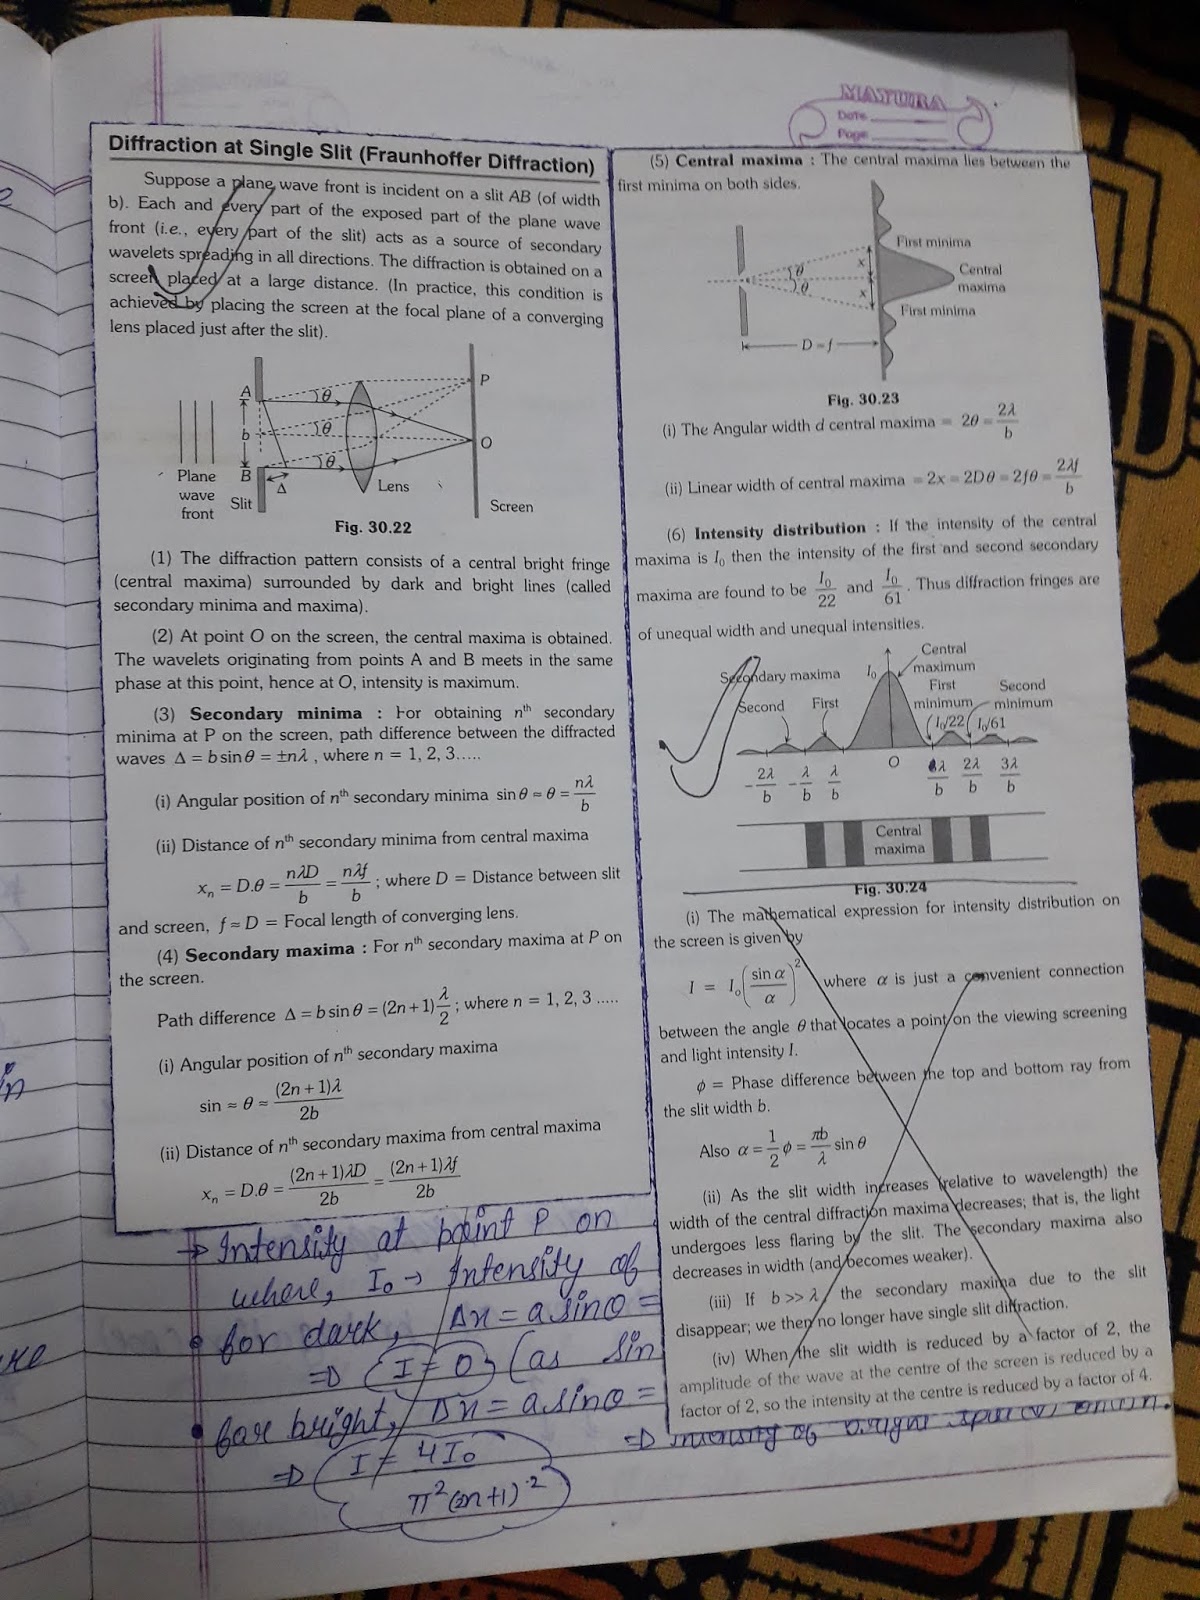 MAYURA
Date
Page
Diffraction at Single Slit (Fraunhoffer Diffraction)
Suppose a plane wave front is incident on a slit AB (of width
b). Each and every part of the exposed part of the plane wave
front (i.e., every part of the slit) acts as a source of secondary
wavelets spreading in all directions. The diffraction is obtained on a
screen placed at a large distance. (In practice, this condition is
achieved by placing the screen at the focal plane of a converging
lens placed just after the slit).
A
θ
P
b
θ
O
B
θ
Δ
Plane
wave
front
Slit
Lens
Screen
Fig. 30.22
(1) The diffraction pattern consists of a central bright fringe
(central maxima) surrounded by dark and bright lines (called
secondary minima and maxima).
(2) At point O on the screen, the central maxima is obtained.
The wavelets originating from points A and B meets in the same
phase at this point, hence at O, intensity is maximum.
(3) Secondary minima : For obtaining nᵗʰ secondary
minima at P on the screen, path difference between the diffracted
waves Δ = b sin θ = ±nλ , where n = 1, 2, 3.....
(i) Angular position of nᵗʰ secondary minima sin θ ≈ θ = nλ/b
(ii) Distance of nᵗʰ secondary minima from central maxima
xₙ = D.θ = nλD/b = nλf/b ; where D = Distance between slit
and screen, f ≈ D = Focal length of converging lens.
(4) Secondary maxima : For nᵗʰ secondary maxima at P on
the screen.
Path difference Δ = b sin θ = (2n + 1) λ/2 ; where n = 1, 2, 3 .....
(i) Angular position of nᵗʰ secondary maxima
sin ≈ θ ≈ (2n + 1)λ/2b
(ii) Distance of nᵗʰ secondary maxima from central maxima
xₙ = D.θ = (2n + 1)λD/2b = (2n + 1)λf/2b
→ Intensity at point P on
where, I₀ → Intensity of
• for dark, Δx = a sinθ =
⇒ I = 0, (as sin
• for bright, Δx = a sinθ =
⇒ I = 4I₀/π²(2n+1)²
(5) Central maxima : The central maxima lies between the
first minima on both sides.
First minima
x
θ
Central
maxima
θ
x
First minima
D = f
Fig. 30.23
(i) The Angular width d central maxima = 2θ = 2λ/b
(ii) Linear width of central maxima = 2x = 2Dθ = 2fθ = 2λf/b
(6) Intensity distribution : If the intensity of the central
maxima is I₀ then the intensity of the first and second secondary
maxima are found to be I₀/22 and I₀/61 . Thus diffraction fringes are
of unequal width and unequal intensities.
Central
maximum
Secondary maxima
I₀
First
minimum
Second
minimum
Second
First
I₀/22
I₀/61
O
-2λ/b -λ/b λ/b λ/b 2λ/b 3λ/b
Central
maxima
Fig. 30.24
(i) The mathematical expression for intensity distribution on
the screen is given by
I = I₀(sin α/α)² where α is just a convenient connection
between the angle θ that locates a point on the viewing screening
and light intensity I.
ϕ = Phase difference between the top and bottom ray from
the slit width b.
Also α = 1/2 ϕ = πb/λ sin θ
(ii) As the slit width increases (relative to wavelength) the
width of the central diffraction maxima decreases; that is, the light
undergoes less flaring by the slit. The secondary maxima also
decreases in width (and becomes weaker).
(iii) If b >> λ, the secondary maxima due to the slit
disappear; we then no longer have single slit diffraction.
(iv) When the slit width is reduced by a factor of 2, the
amplitude of the wave at the centre of the screen is reduced by a
factor of 2, so the intensity at the centre is reduced by a factor of 4.
⇒ intensity of bright